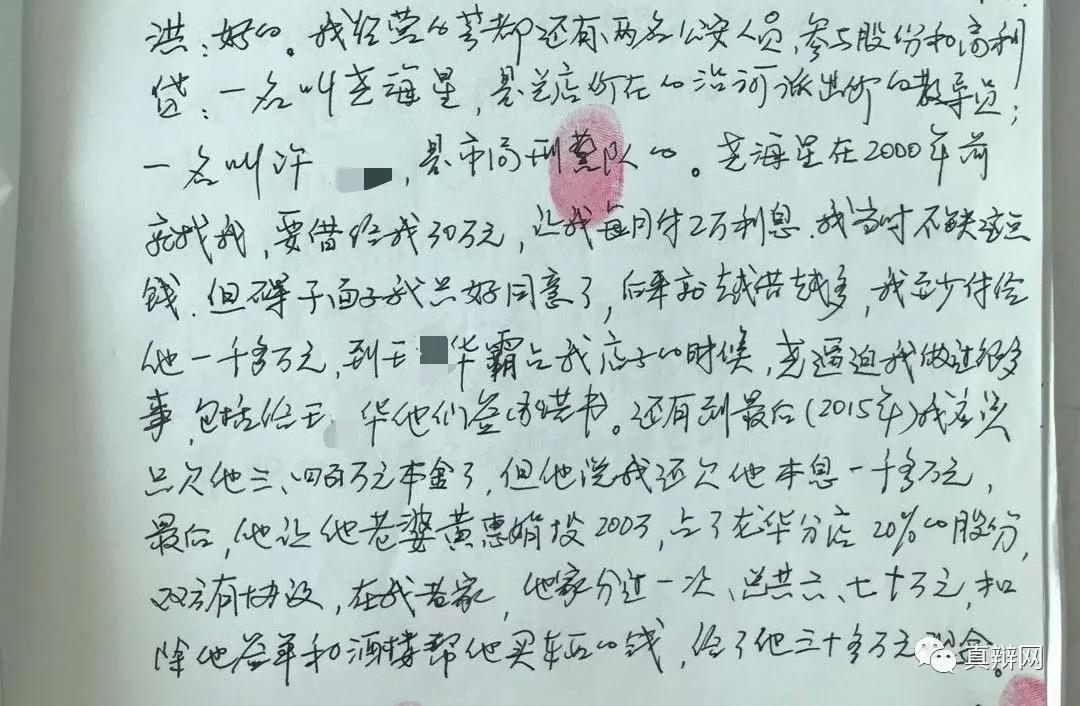 洪：好的。我经营的荟都还有两名公安人员，参与股份和高利
贷：一名叫尧海星，是总店所在的沿河派出所的教导员；
一名叫许，是市局刑警队的。尧海星在2000年前
就找我，要借给我30万元，让我每月付2万利息，我当时不缺这点
钱，但碍于面子我只好同意了，后来就越借越多，我至少付给
他一千多万元，到王华霸占我店子的时候，尧逼迫我做过很多
事，包括给王华他们签承诺书。还有到最后(2015年)我应该
只欠他三、四百万元本金了，但他说我还欠他本息一千多万元，
最后，他让他老婆黄惠娟投200万，占了龙华分店20%的股份，
双方有协议，在我老家，他家分过一次、总共六、七十万元，扣
除他签单和酒楼帮他买东西的钱，给了他三十多万元现金。
真辩网